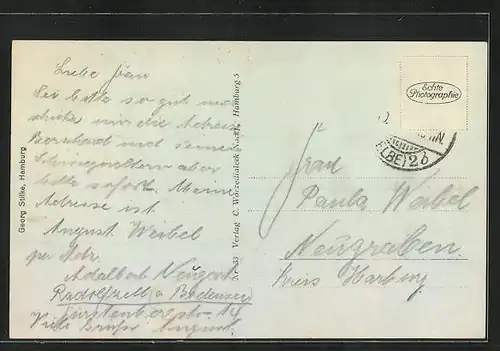 Liebe Frau
Sei bitte so gut und
schicke mir die Adresse
Bernhard und seinen
Schwiegereltern aber
bitte sofort. Meine
Adresse ist
August Weibel
per Adr.
Adalbert
Radolfzell a Bodensee
Fürstenbergstr. 14
Viele Grüße August
Georg Stilke, Hamburg
Nr. 33 Verlag C. Worzedialeck Nachf., Hamburg 5
Echte
Photographie
Frau
Paula Weibel
Neugraben
Kreis Harburg